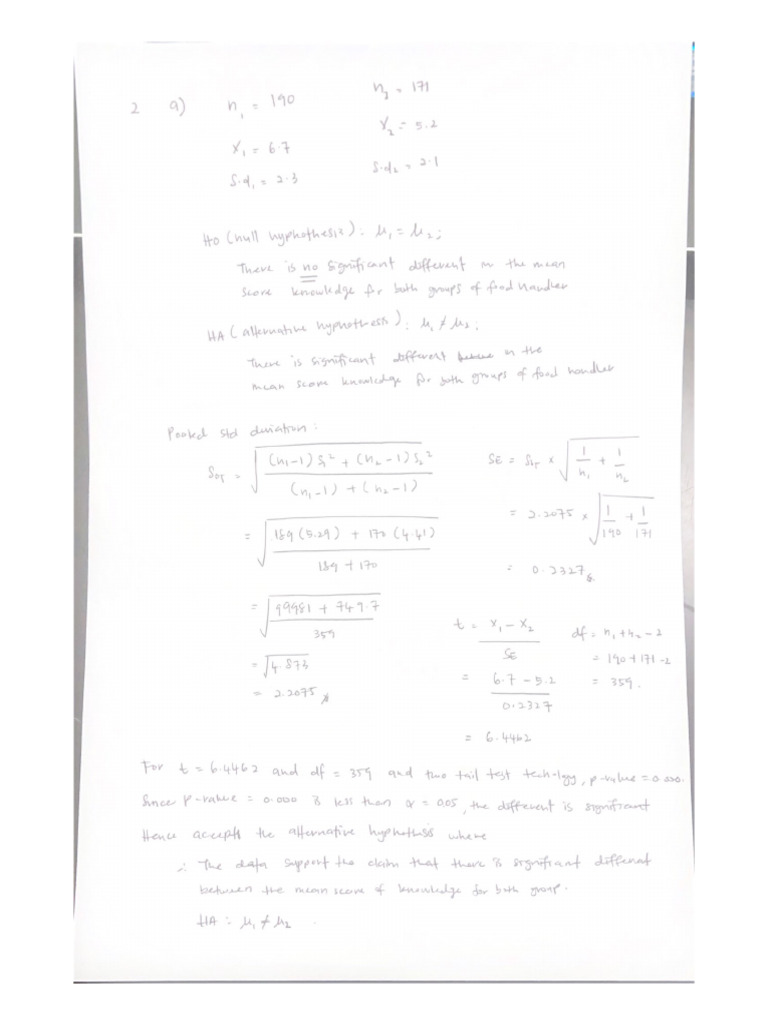 2 a) n₁ = 190 n₂ = 171
X₁ = 6.7 X₂ = 5.2
S.d₁ = 2.3 S.d₂ = 2.1
H0 (null hyphothesis) : μ₁ = μ₂ ;
There is no significant different in the mean
score knowledge for both groups of food handler
HA (alternative hyphothesis) : μ₁ ≠ μ₂ ;
There is significant different in the
mean score knowledge for both groups of food handler
Pooled std deviation :
= √((n₁-1)S₁² + (n₂-1)S₂² / (n₁-1) + (n₂-1)) SE = × √(1/n₁ + 1/n₂)
= √(189(5.29) + 170(4.41) / 189 + 170) = 2.2075 × √(1/190 + 1/171)
= 0.2327
= √(99981 + 749.7 / 359) t = X₁ - X₂ / SE df = n₁+n₂-2
= √4.873 = 6.7 - 5.2 / 0.2327 = 190+171-2
= 2.2075 = 359.
= 6.4462
For t = 6.4462 and df = 359 and two tail test, p-value = 0.000.
Since P-value = 0.000 is less than α = 0.05, the different is significant
Hence accepts the alternative hyphothesis where
∴ The data support the claim that there is significant different
between the mean score of knowledge for both group.
HA : μ₁ ≠ μ₂ .